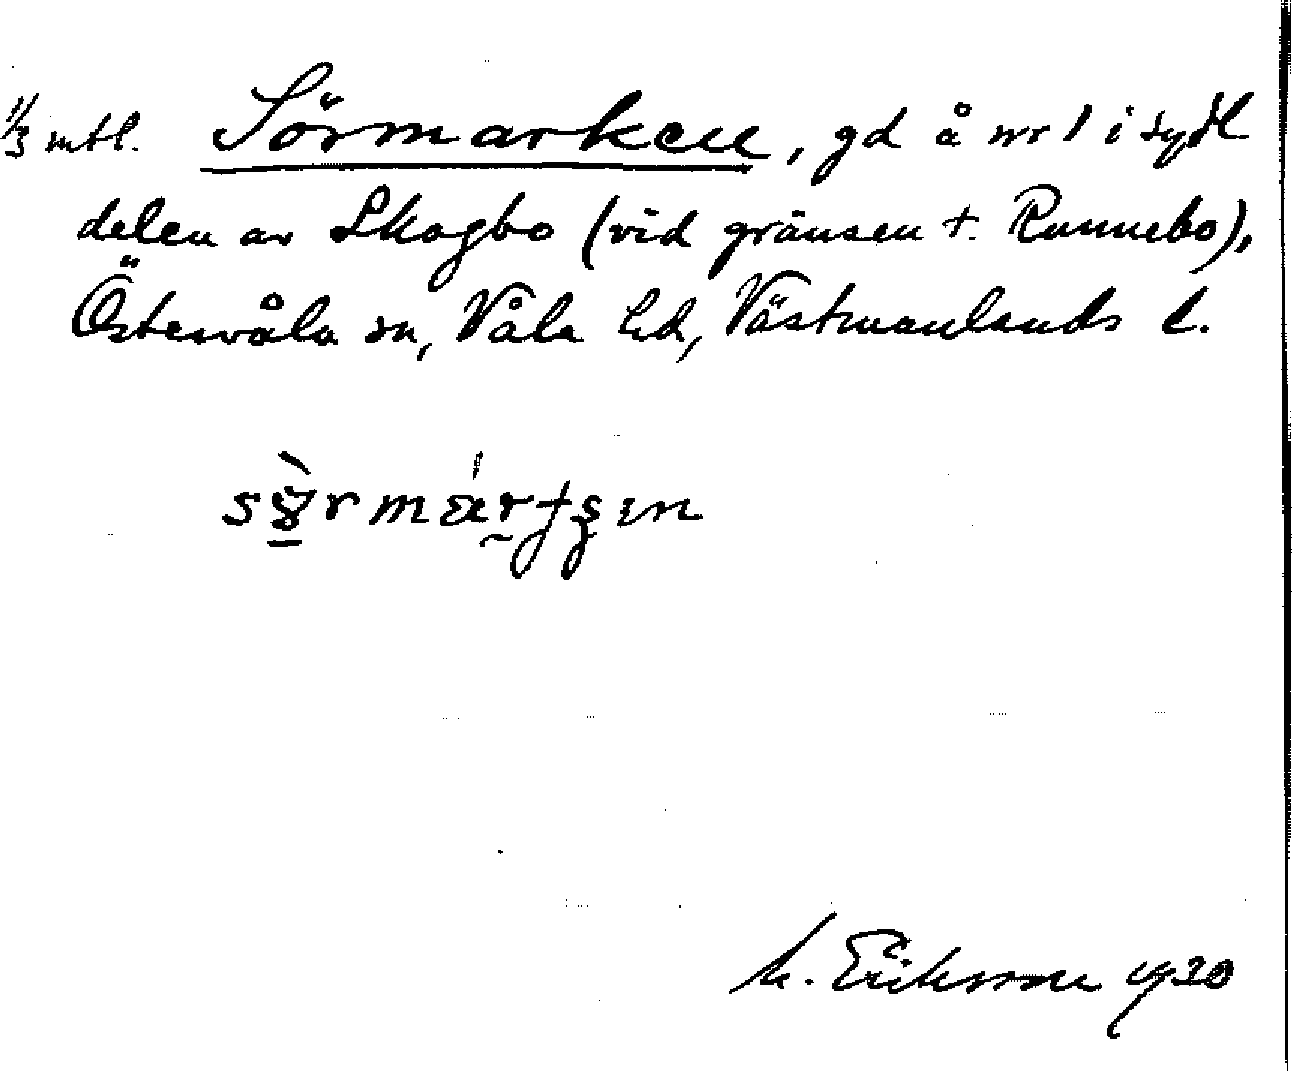 1/3 mtl. Sörmarken, gd å nr 1 i sydl
delen av Skogbo (vid gränsen t. Runnebo),
Östervåla sn, Våla hd, Västmanlands l.
M. Eriksson 1930